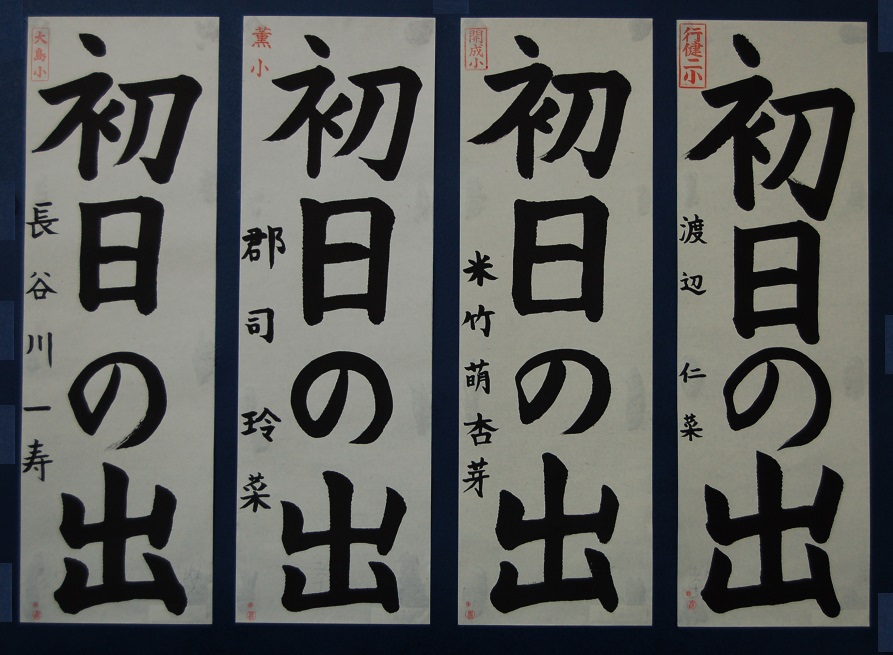 大島小
初日の出
長谷川一寿
薫小
初日の出
郡司 玲菜
開成小
初日の出
米竹萌杏芽
行健二小
初日の出
渡辺 仁菜